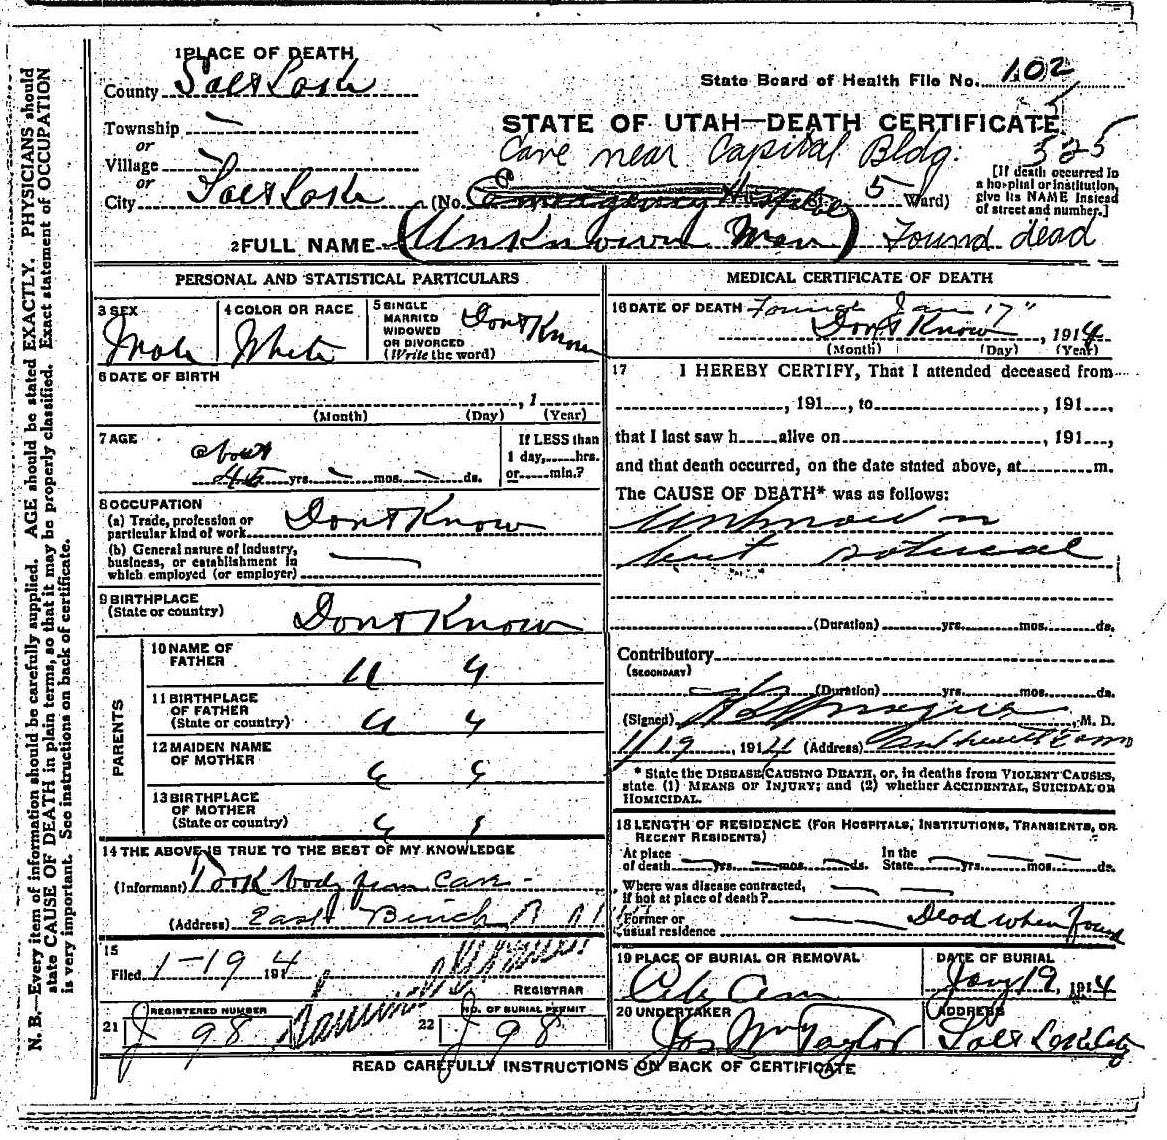 1 PLACE OF DEATH
County Salt Lake
State Board of Health File No. 102
Township —
or
Village —
or
City Salt Lake
STATE OF UTAH—DEATH CERTIFICATE
Cave near Capital Bldg. 525
(No. Emergency Hospital St. 5 Ward)
[If death occurred in
a hospital or institution,
give its NAME instead
of street and number.]
2 FULL NAME (Unknown Man) Found dead
PERSONAL AND STATISTICAL PARTICULARS
3 SEX
Male
4 COLOR OR RACE
White
5 SINGLE
MARRIED
WIDOWED
OR DIVORCED
(Write the word)
Dont Know
6 DATE OF BIRTH
, 1
(Month) (Day) (Year)
7 AGE
About
45 yrs. — mos. — ds.
If LESS than
1 day, hrs.
or min.?
8 OCCUPATION
(a) Trade, profession or
particular kind of work Dont Know
(b) General nature of industry,
business, or establishment in
which employed (or employer) —
9 BIRTHPLACE
(State or country) Dont Know
PARENTS
10 NAME OF
FATHER
11 BIRTHPLACE
OF FATHER
(State or country)
12 MAIDEN NAME
OF MOTHER
13 BIRTHPLACE
OF MOTHER
(State or country)
14 THE ABOVE IS TRUE TO THE BEST OF MY KNOWLEDGE
(Informant) Took body from Cave
(Address) East
15
Filed 1-19 1914
REGISTRAR
21 REGISTERED NUMBER
J 98
22 NO. OF BURIAL PERMIT
J 98
MEDICAL CERTIFICATE OF DEATH
16 DATE OF DEATH Found Jan 17"
Dont Know, 1914
(Month) (Day) (Year)
17 I HEREBY CERTIFY, That I attended deceased from
, 191 , to , 191 ,
that I last saw h alive on , 191 ,
and that death occurred, on the date stated above, at m.
The CAUSE OF DEATH* was as follows:
Unknown
but natural
(Duration) yrs. mos. ds.
Contributory
(SECONDARY)
(Duration) yrs. mos. ds.
(Signed) , M. D.
1/19, 1914 (Address)
* State the DISEASE CAUSING DEATH, or, in deaths from VIOLENT CAUSES,
state (1) MEANS OF INJURY; and (2) whether ACCIDENTAL, SUICIDAL OR
HOMICIDAL.
18 LENGTH OF RESIDENCE (FOR HOSPITALS, INSTITUTIONS, TRANSIENTS, OR
RECENT RESIDENTS)
At place
of death — yrs. — mos. — ds.
In the
State — yrs. — mos. — ds.
Where was disease contracted,
if not at place of death? — —
Former or
usual residence — Dead when found
19 PLACE OF BURIAL OR REMOVAL
City Cem
DATE OF BURIAL
Jany 19, 1914
20 UNDERTAKER
Jos Wm Taylor
ADDRESS
Salt Lake City
READ CAREFULLY INSTRUCTIONS ON BACK OF CERTIFICATE
N. B.—Every item of information should be carefully supplied. AGE should be stated EXACTLY. PHYSICIANS should
state CAUSE OF DEATH in plain terms, so that it may be properly classified. Exact statement of OCCUPATION
is very important. See instructions on back of certificate.